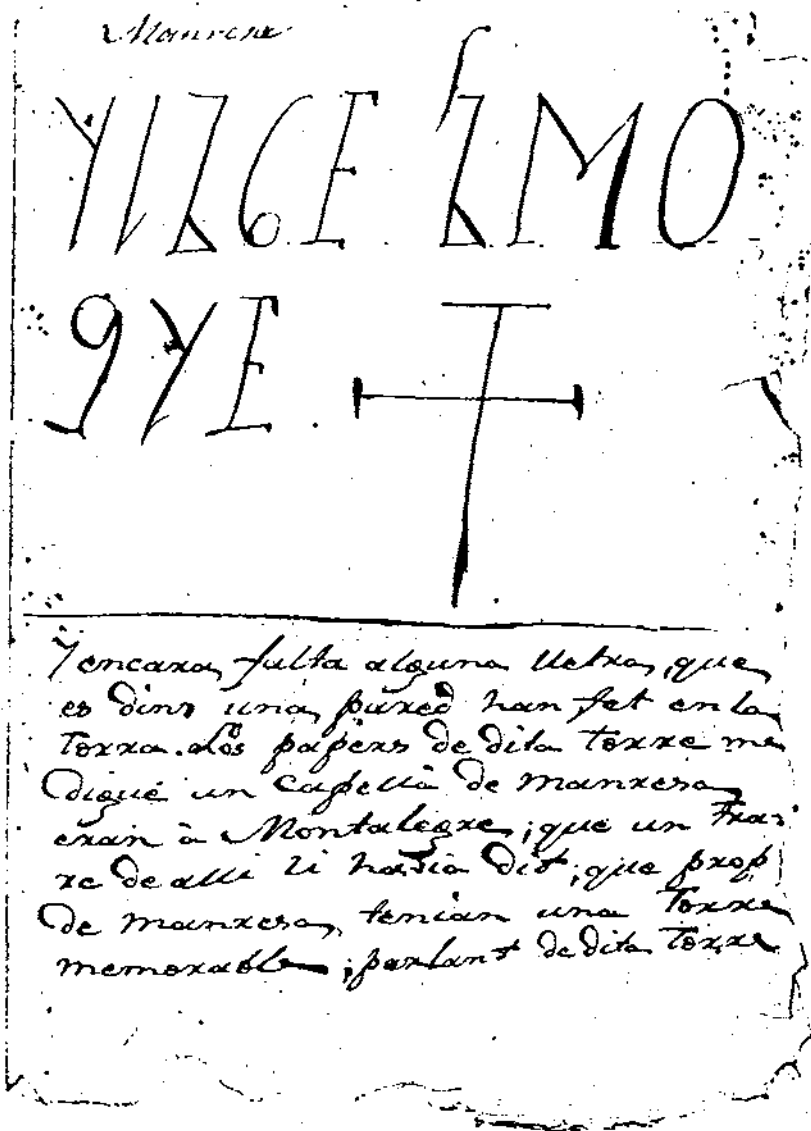 Manresa
YIZGE ZMO
9YE.
Y encara falta alguna lletra, que
es dins una pared han fet en la
Torra. Los papers de dita torre me
digué un capellà de manresa
eran à Montalegre; que un Fra-
re de alli li havia dit; que prop
de manresa, tenian una Torre
memorable; parlant de dita Torre